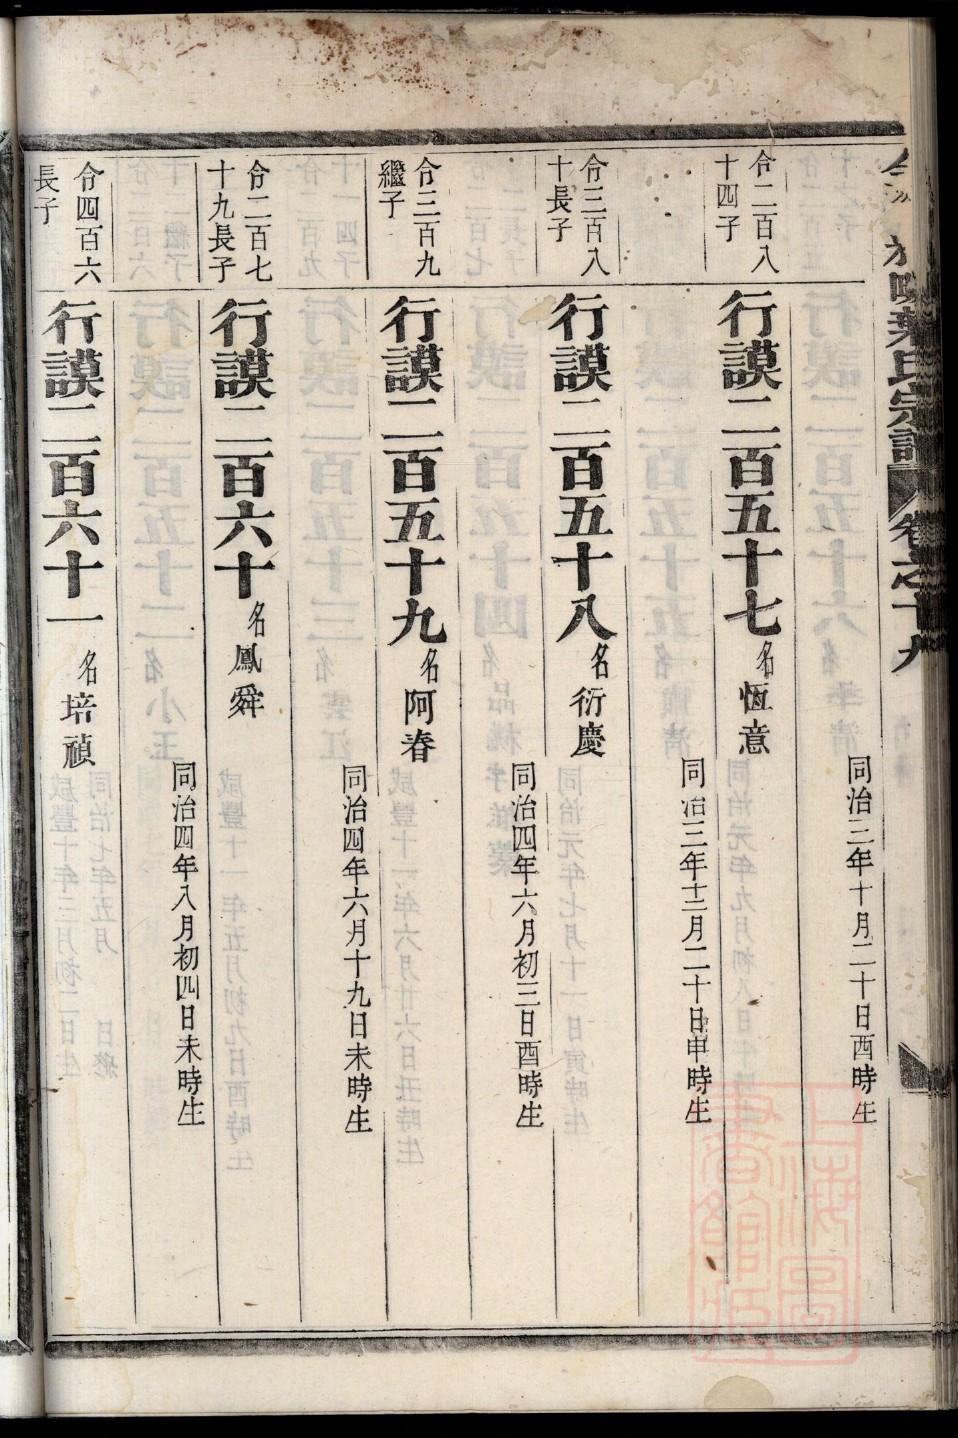 葉氏宗譜
卷之十九
同治三年十月二十日酉時生
令二百八
十四子
行謨二百五十七名恆意
同治三年十二月二十日申時生
令三百八
十長子
行謨二百五十八名衍慶
同治四年六月初三日酉時生
令三百九
繼子
行謨二百五十九名阿春
同治四年六月十九日未時生
令二百七
十九長子
行謨二百六十名鳳舜
同治四年八月初四日未時生
令四百六
長子
行謨二百六十一名培禎
上海圖書館藏